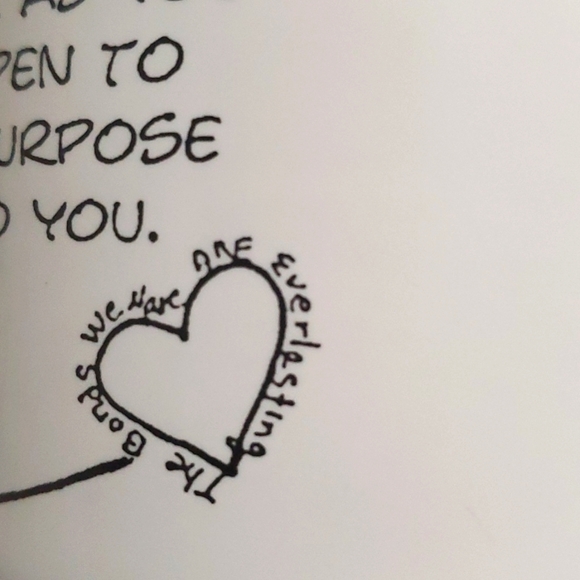 PEN TO
URPOSE
YOU.
The Bonds we Have ARE Everlesting